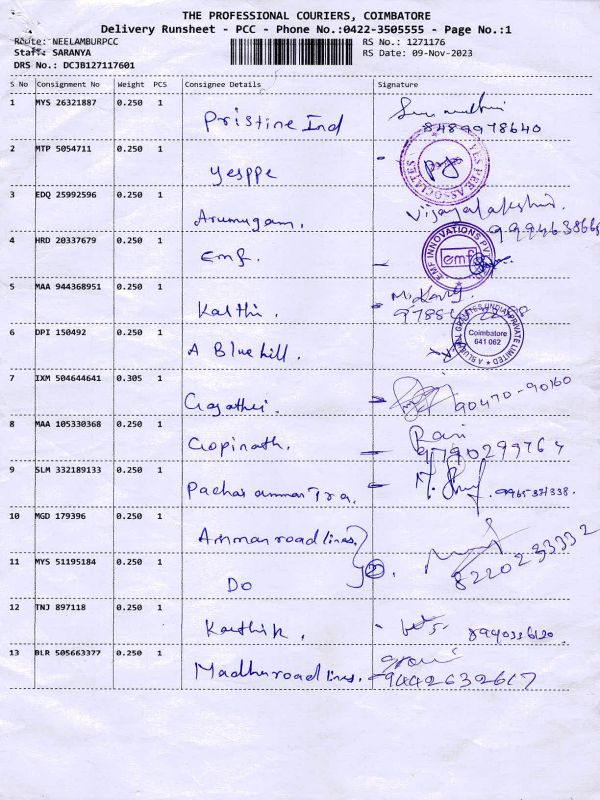 THE PROFESSIONAL COURIERS, COIMBATORE
Delivery Runsheet - PCC - Phone No.:0422-3505555 - Page No.:1
Route: NEELAMBURPCC RS No.: 1271176
Staff: SARANYA RS Date: 09-Nov-2023
DRS No.: DCJB127117601
S No Consignment No Weight PCS Consignee Details Signature
1 MYS 26321887 0.250 1 Pristine Ind
8489978640
2 MTP 5054711 0.250 1 Yesppe YES PEE ASSOCIATES
3 EDQ 25992596 0.250 1 Arumugam. Vijayalakshmi
4 HRD 20337679 0.250 1 Emf. EMF INNOVATIONS PV emf
5 MAA 944368951 0.250 1 Karthi.
6 DPI 150492 0.250 1 A Bluehill. Coimbatore 641 062 PRIVATE LIMITED
7 IXM 504644641 0.305 1 90470-90160
8 MAA 105330368 0.250 1 Gopinath. Ravi
9790299764
9 SLM 332189133 0.250 1 Pachaiamman Tra.
10 MGD 179396 0.250 1 Amman roadlines.
11 MYS 51195184 0.250 1 Do 2. 8220233332
12 TNJ 897118 0.250 1 Karthik.
13 BLR 505663377 0.250 1 Madhu roadlines. 9442632617